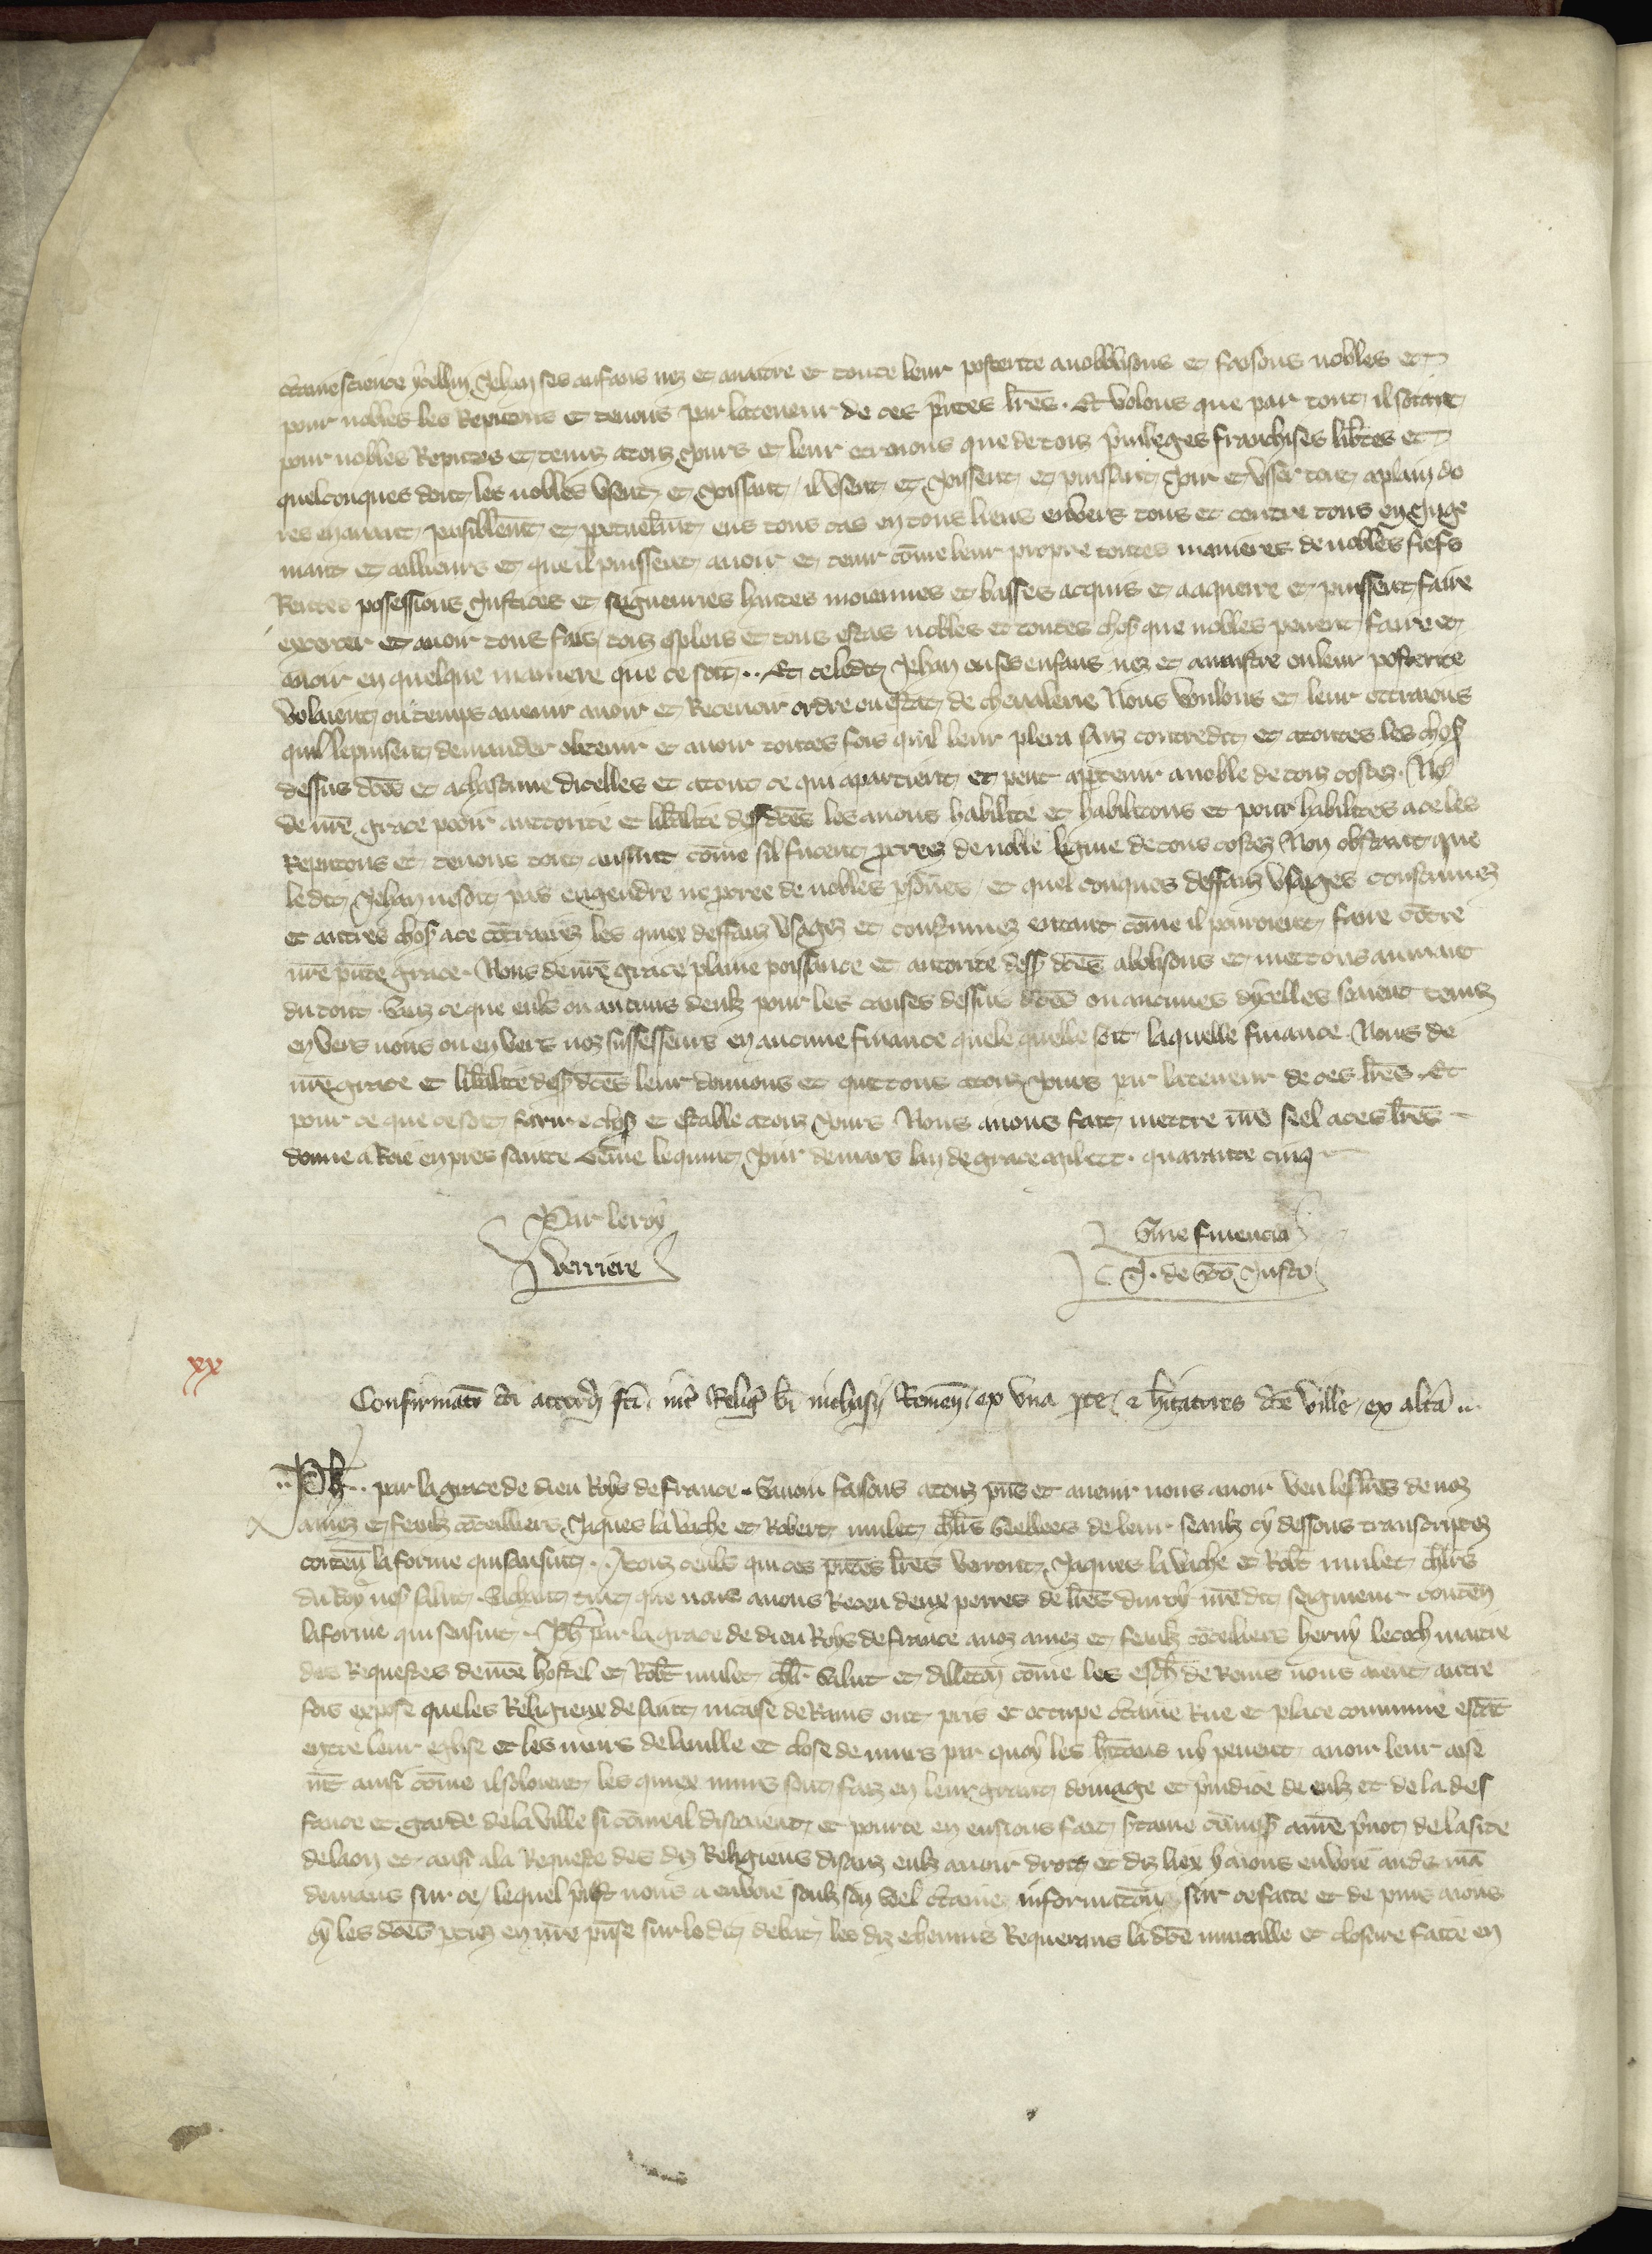 c̃taine science ycelluy Jehan ses anfans nez et a naitre et toute leur posterite anoblissons et faisons nobles et
pour nobles les Reputons et tenons par la teneur de ces p̃ntes lr̃es . Et volons que par tout il soient
pour nobles Reputes et tenuz a touz jours et leur otroions que de touz p̃vileges franchises lib̃tes et
quelconques dont les nobles vsent et joissent / il vsent et joissent et puissent joir et vser tout a plain do
res en avant paisiblem̃t et ppetuelm̃t ens tous cas en tous lieus envers tous et contre tous en juge
mant et aillieurs et que il puissent avoir et tenir cõme leur propre toutes manieres de nobles fiefs
Rentes possessions justices et seigneuries hautes moiennes et basses acquis et a aquerre et puissent faire
exercer et avoir tous fais / touz esplois et tous estas nobles et toutes chos̃ que nobles pevent faire et
avoir en quelque maniere que ce soit .. Et se ledit Jehan ou ses enfans nez et a naistre ou leur posterite
voloient ou temps avenir avoir et Recevoir ordre ou estat de chevalerie Nous voulons et leur ottroions
quil le puissent demander obtenir et avoir toutes fois quil leur plera sanz contredit et a toutes les chos̃
dessus dc̃es et a chascune dicelles et a tout ce qui apartient et peut aptenir a noble de touz costez . No9
de nr̃e grace pooir auttorite et lib̃alite dess̃ dc̃es les avons habilite et habilitons et pour habilites a ce les
Reputons et tenons tout ausint cõme sil fucent pcreez de noble lignie de tous costez Non obstant que
ledit Jehan ne soit pas engendre ne pcree de nobles psõnes / et quelconques deffanz vsages coustumez
et autres chos̃ a ce cõtraires les quiex deffanz vsages et coustumez en tant cõme il pouroient faire cõtre
nr̃e p̃nte grace . Nous de nr̃e grace plaine poissance et autorite dess̃ dc̃es abolisons et mettons au niant
du tout . Sanz ce que euls ou aucuns deulz pour les causes dessus dc̃es ou aucunes dycelles soient tenuz
en vers nous ou en vers noz successeurs en aucune finance quele quelle soit laquelle finance . Nous de
nr̃e grace et lib̃alite dess̃ dc̃es leur donnons et quittons a touz jours par la teneur de ces lr̃es . Et
pour ce que ce soit ferme chos̃ et estable a touz jours Nous avons fait mettre nr̃e seel a ces lr̃es
donne a Roie en pres sainte Gẽme le quint jour de mars lan de grace mil ccc . quarante cinq
Par le roy
Verriere
Sine financia
J. de Sc̃o Justo
xx
Confirmatio c̃di accordi fc̃i int̃ Relig̃ bĩ nichasij Remeñ / ex vna pte / 2 h̃itatores dc̃e ville / ex alt̃a ..
.. Ph̃ .. par la grace de dieu Roys de france . Savoir faisons a touz p̃ns et avenir nous avoir veu les lr̃es de noz
amez et feaulz cõseilliers Jaques la vache et Robert mulet chlr̃s Seellees de leur seaulz cy dessous transcriptez
conteñ la forme qui sansuit .. A touz ceuls qui ces p̃ntes lr̃es verront Jaques la vache et Rob̃t mulet chlr̃s
du Roy nr̃e s̃ salut . Sachent tuit que nous avons Receu deux peires de lr̃es du roy nr̃e dit seigneur conteñ
la forme qui sensuit . Ph̃ par la grace de dieu Roys de france a noz amez et feaulz cõseilliers henry le coch maitre
des Requestes de nr̃e hostel et Rob̃t mulet chlr̃ . Salut et dillectoñ cõme les esch̃ de Reins nous aient autre
fois expose que les Religieux de saint nicaise de Rains ont pris et occupe c̃taine Rue et place commune estãt
entre leur eglise et les murs de la ville et close de murs par quoy les h̃itans ny pevent avoir leur aise
mẽt ausi cõme il soloient les quiex murs sont faiz en leur grant domage et p̃iudice de eulz et de la def
fance et garde de la ville si cõme il disoient et pource en eussions fait c̃taine cõmiss̃ a nr̃e p̃vot de la site
de laon et ausi a la Requeste des diz Religieus disanz eulz avoir droit et diz liex y avons envoie audr̃ mã
demans sur ce / lequel p̃vost nous a envoie soulz son seel c̃taine informatioñ sur ce faite et de puis avons
oy les dc̃es pties en nr̃e p̃nse sur le dit debat les diz echevins Requerans la dc̃e muraille et closure faite en